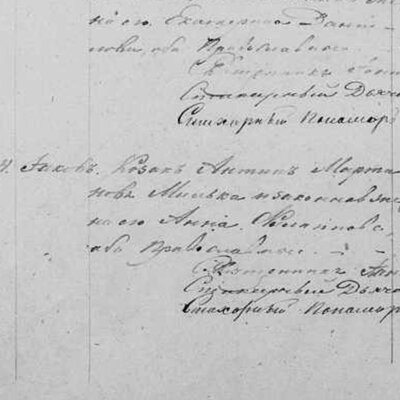 на его Екатерина Дани-
лова, оба Православные.
Священникъ
Стихарный Дьячо
Стихарный Пономар
Іаковъ. Козакъ Антипъ Марти-
новъ Милька и законная же
на его Анна
оба православные.
Священникъ
Стихарный Дьячо
Стихарный Пономар